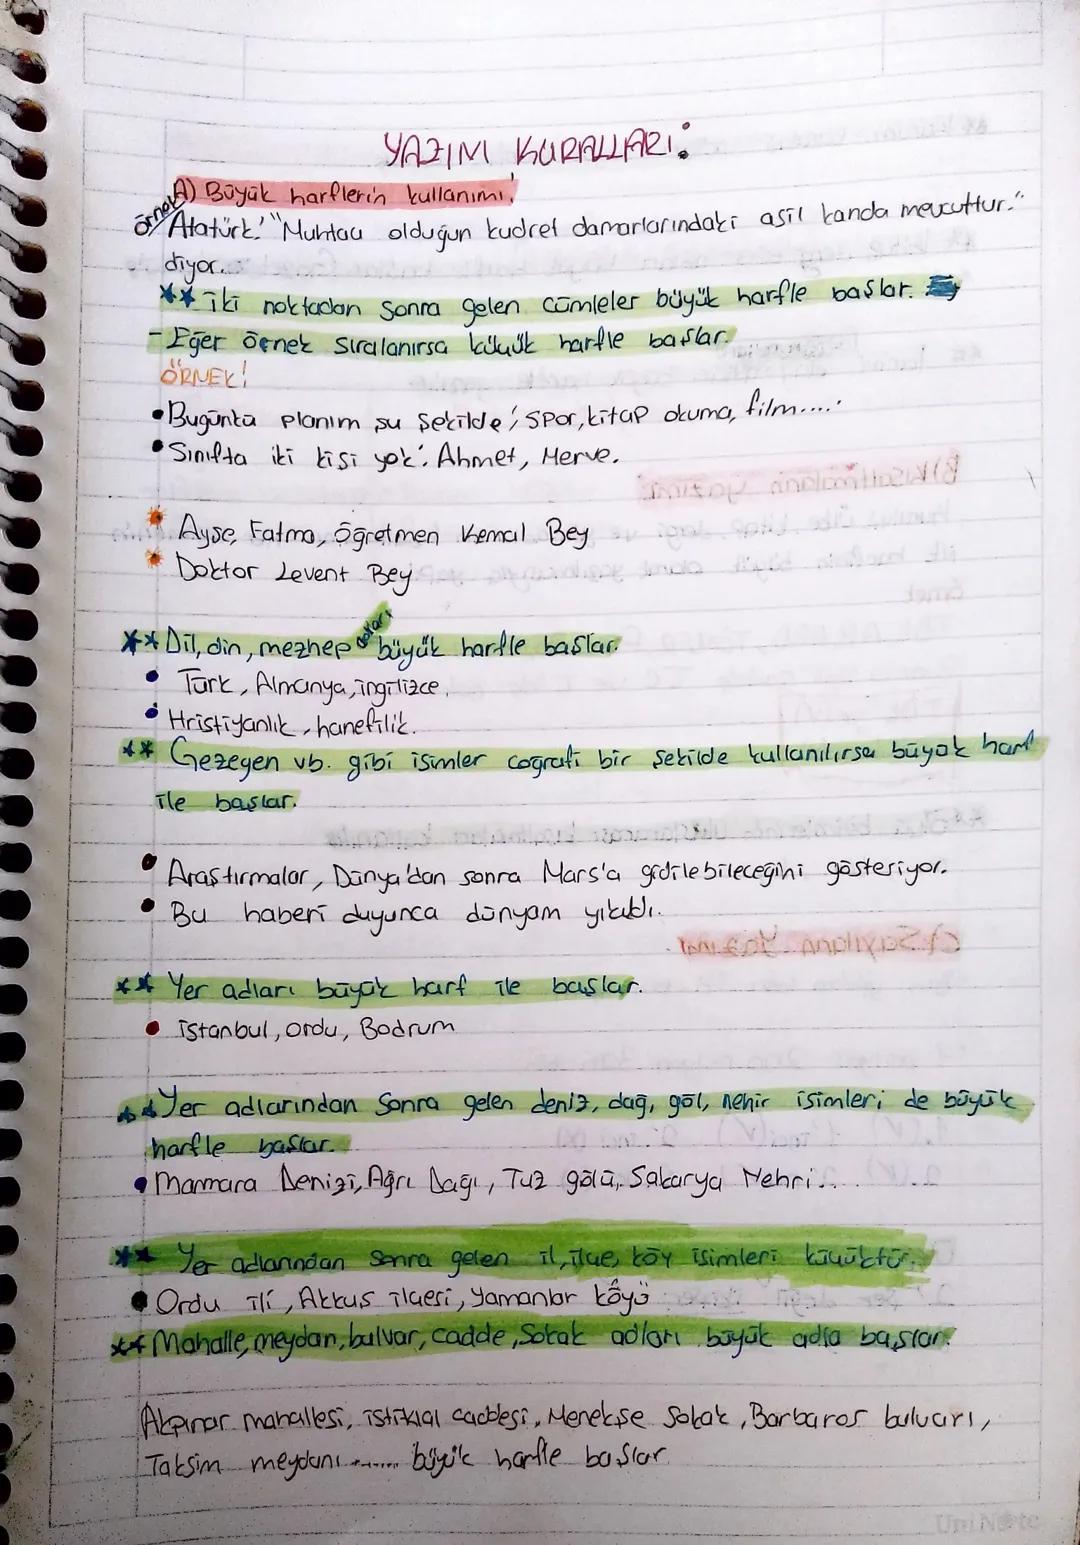 YAZIM KURALLARI:
A) Büyük harflerin kullanımı:
örnek/ Atatürk: "Muhtaç olduğun kudret damarlarındaki asil kanda mevcuttur."
diyor...
** İki noktadan sonra gelen cümleler büyük harfle başlar.
- Eğer örnek sıralanırsa küçük harfle başlar.
ÖRNEK:
• Bugünkü planım şu şekilde: spor, kitap okuma, film....
• Sınıfta iki kişi yok: Ahmet, Merve.
Ayşe, Fatma, Öğretmen Kemal Bey
Doktor Levent Bey
** Dil, din, mezhep adları büyük harfle başlar.
• Türk, Almanya, ingilizce,
• Hristiyanlık, hanefilik.
** Gezegen vb. gibi isimler coğrafi bir şekilde kullanılırsa büyük harf
ile başlar.
• Araştırmalar, Dünya'dan sonra Mars'a gidilebileceğini gösteriyor.
• Bu haberi duyunca dünyam yıkıldı.
** Yer adları büyük harf ile başlar.
• istanbul, ordu, Bodrum
** Yer adlarından sonra gelen deniz, dağ, göl, nehir isimleri de büyük
harfle başlar.
• Marmara Denizi, Ağrı Dağı, Tuz gölü, Sakarya Nehri...
** Yer adlarından sonra gelen il, ilçe, köy isimleri küçüktür.
• Ordu ili, Akkuş ilçesi, Yamanlar köyü
** Mahalle, meydan, bulvar, cadde, Sokak adları büyük adla başlar.
Akpınar mahallesi, istiklal caddesi, Menekşe Sokak, Barbaros bulvarı,
Taksim meydanı ...... büyük harfle başlar
UniNote